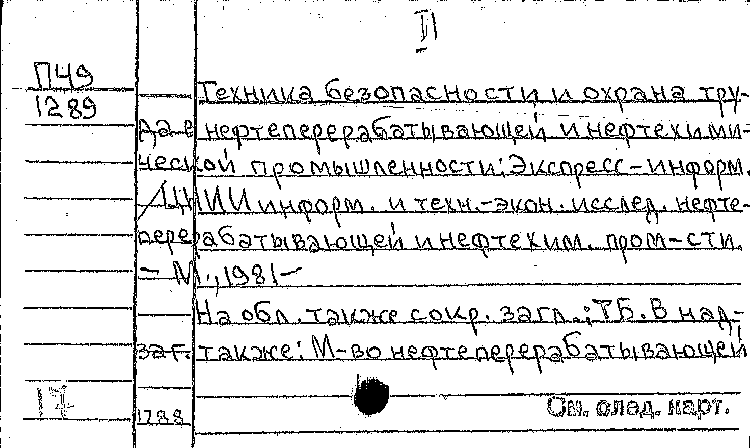 П
П49
1289
Техника безопасности и охрана тру-
да в нефтеперерабатывающей и нефтехими-
ческой промышленности: Экспресс-информ.
/ЦНИИ информ. и техн.-экон. исслед. нефте-
перерабатывающей и нефтехим. пром-сти.
– М., 1981–
На обл. также сокр. загл.: ТБ. В над-
заг. также: М-во нефтеперерабатывающей
17
1788
См. след. карт.